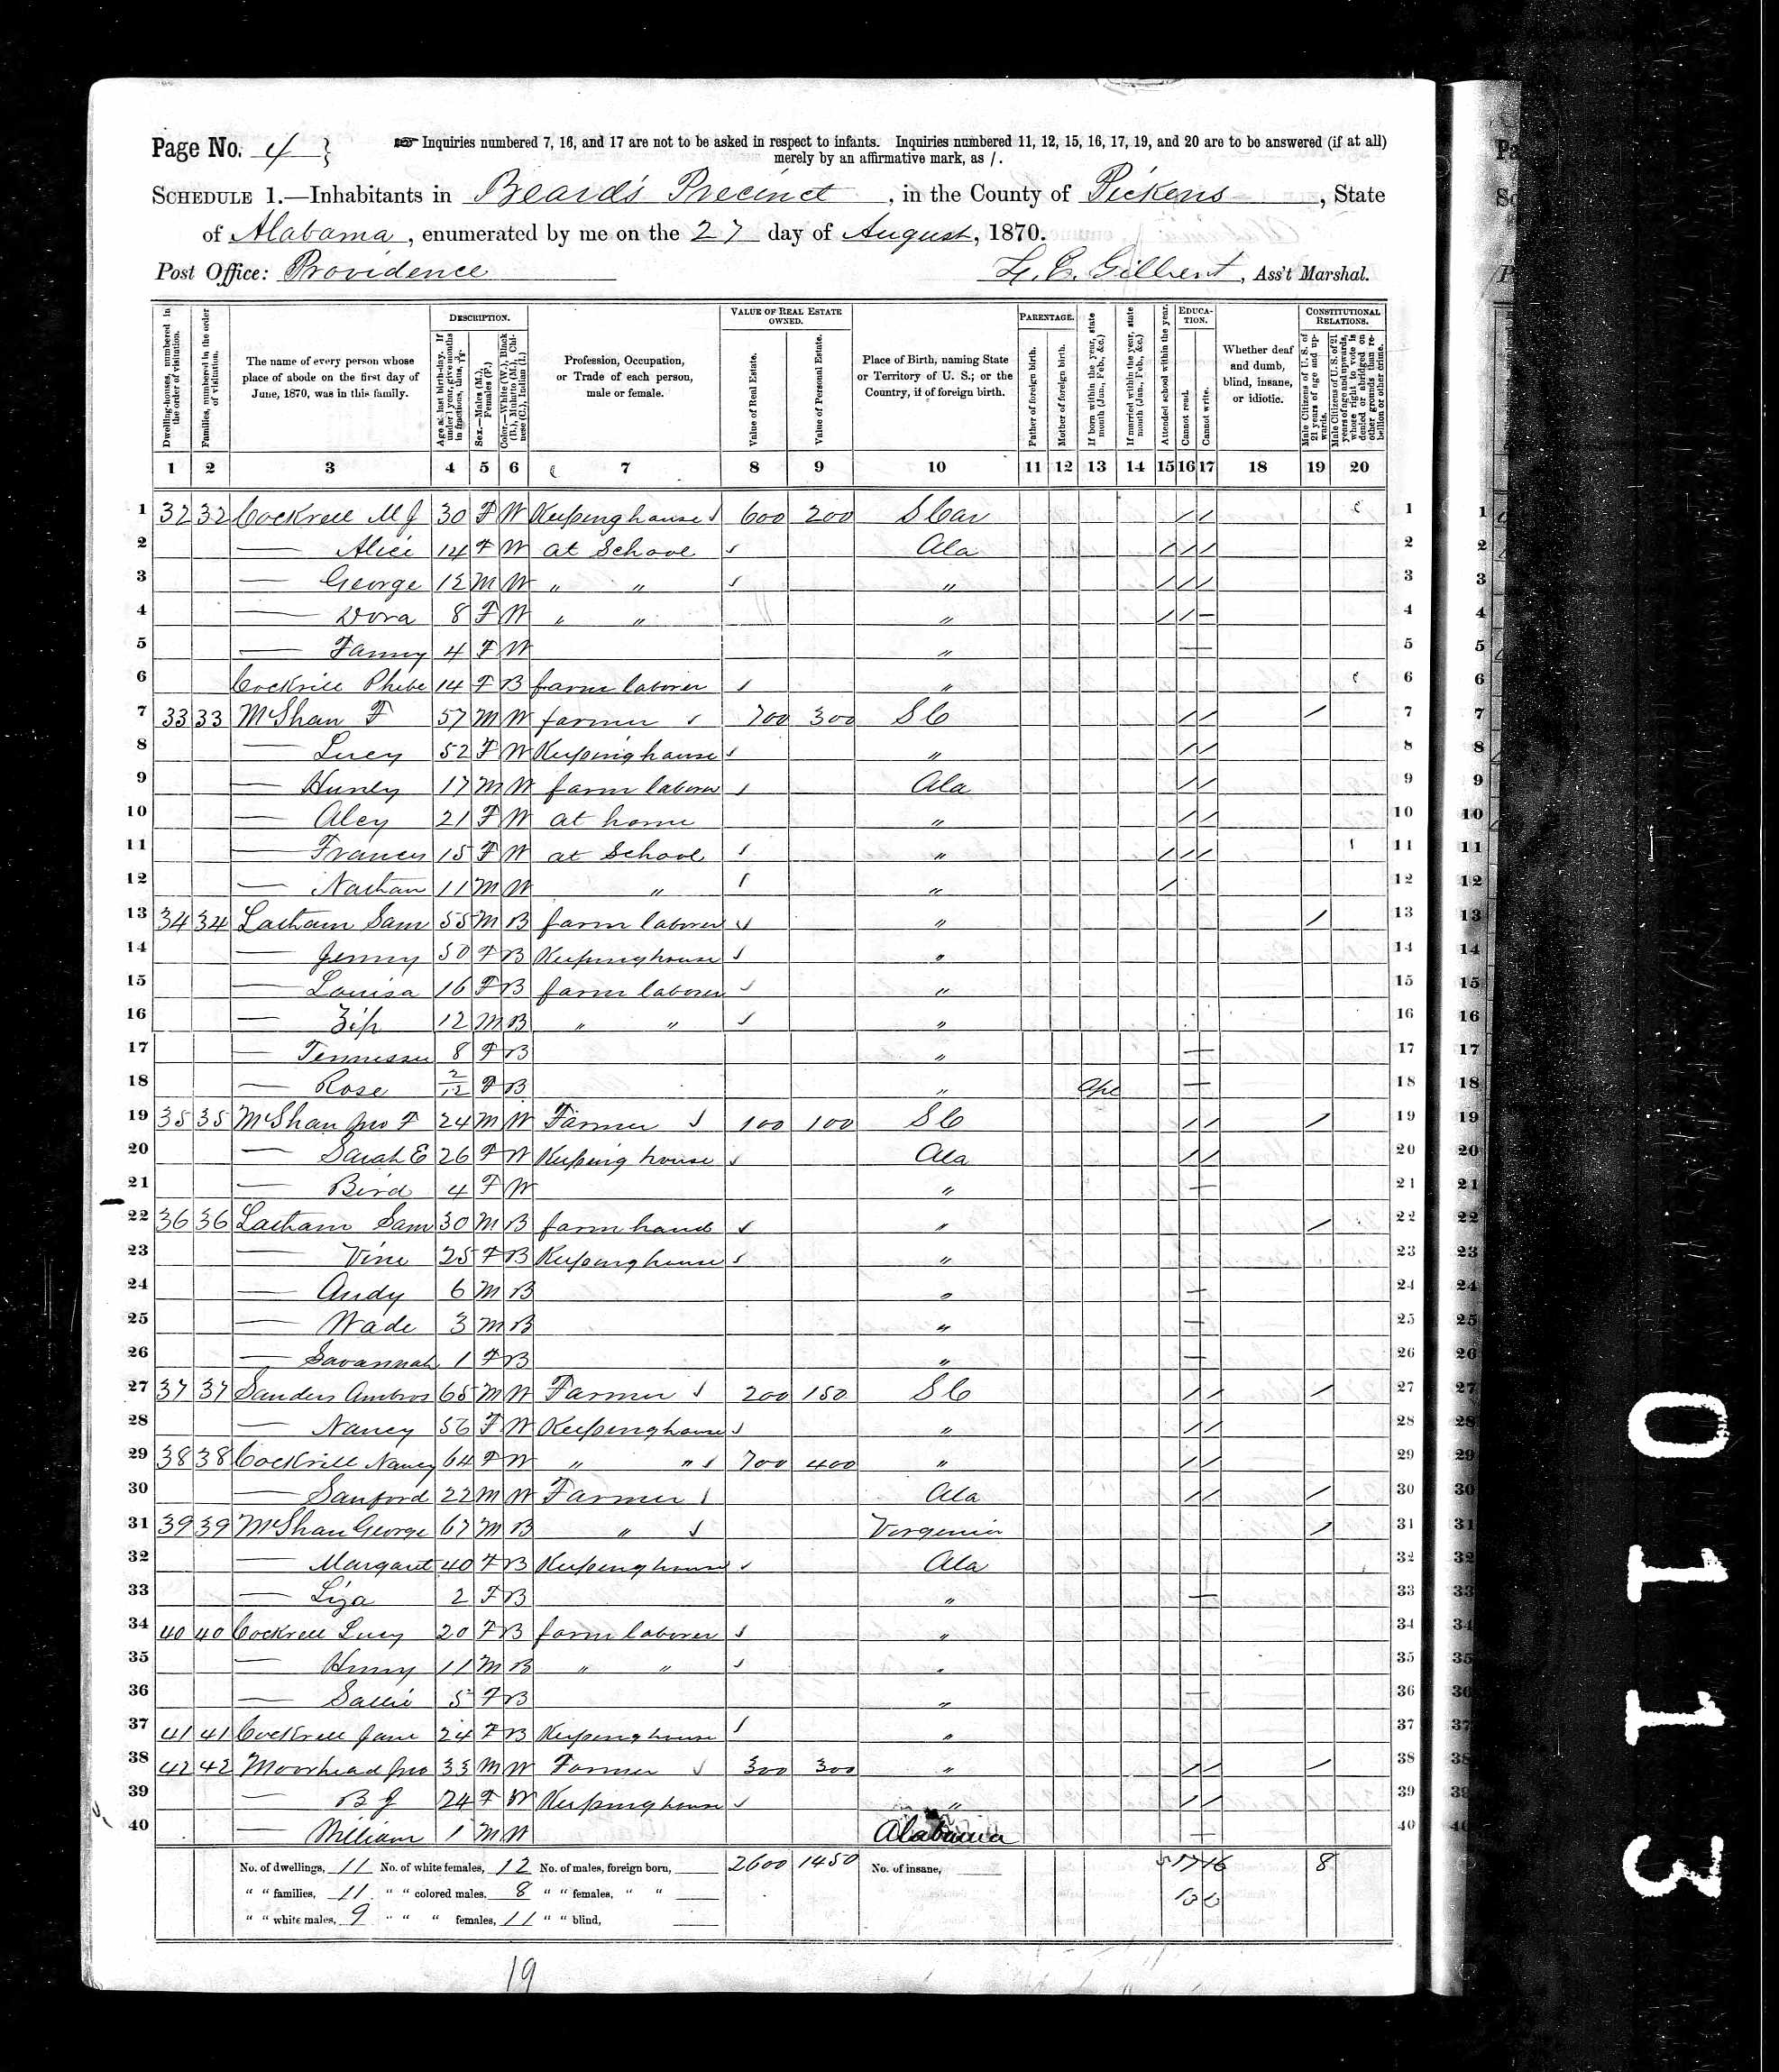 Page No. 4 }
☞ Inquiries numbered 7, 16, and 17 are not to be asked in respect to infants. Inquiries numbered 11, 12, 15, 16, 17, 19, and 20 are to be answered (if at all)
merely by an affirmative mark, as /.
SCHEDULE 1.—Inhabitants in Beard's Precinct, in the County of Pickens, State
of Alabama, enumerated by me on the 27 day of August, 1870.
Post Office: Providence Gilbert, Ass't Marshal.
Dwelling-houses, numbered in the order of visitation.
Families, numbered in the order of visitation.
The name of every person whose place of abode on the first day of June, 1870, was in this family.
DESCRIPTION.
Age at last birth-day. If under 1 year, give months in fractions, thus, 3/12.
Sex.—Males (M.), Females (F.)
Color.—White (W.), Black (B.), Mulatto (M.), Chinese (C.), Indian (I.)
Profession, Occupation, or Trade of each person, male or female.
VALUE OF REAL ESTATE OWNED.
Value of Real Estate.
Value of Personal Estate.
Place of Birth, naming State or Territory of U. S.; or the Country, if of foreign birth.
PARENTAGE.
Father of foreign birth.
Mother of foreign birth.
If born within the year, state month (Jan., Feb., &c.)
If married within the year, state month (Jan., Feb., &c.)
Attended school within the year.
EDUCATION.
Cannot read.
Cannot write.
Whether deaf and dumb, blind, insane, or idiotic.
CONSTITUTIONAL RELATIONS.
Male Citizens of U. S. of 21 years of age and upwards.
Male Citizens of U. S. of 21 years of age and upwards, whose right to vote is denied or abridged on other grounds than rebellion or other crime.
1 2 3 4 5 6 7 8 9 10 11 12 13 14 15 16 17 18 19 20
1 32 32 Cockrell M J 30 F W Keeping house 600 200 S Car / / 1
2 — Alice 14 F W at School Ala / / / 2
3 — George 12 M W " " " / / / 3
4 — Dora 8 F W " " " / / — 4
5 — Fanny 4 F W " — 5
6 Cockrill Phebe 14 F B farm laborer " 6
7 33 33 McShan F 57 M W farmer 700 300 S C / / / 7
8 — Lucy 52 F W Keeping house " / / 8
9 — 17 M W farm laborer Ala / / 9
10 — Aley 21 F W at home " / / 10
11 — Frances 15 F W at School " / / / 11
12 — Nathan 11 M W " " / 12
13 34 34 Latham Sam 55 M B farm laborer " / 13
14 — Jenny 50 F B Keeping house " 14
15 — Louisa 16 F B farm laborer " 15
16 — Zip 12 M B " " " 16
17 — Tennessee 8 F B " — 17
18 — Rose 2/12 F B " Apl — 18
19 35 35 McShan Jno F 24 M W Farmer 100 100 S C / / / 19
20 — Sarah E 26 F W Keeping house Ala / / 20
21 — Bird 4 F W " — 21
22 36 36 Latham Sam 30 M B farm hand " / 22
23 — Vine 25 F B Keeping house " 23
24 — Andy 6 M B " — 24
25 — Wade 3 M B " — 25
26 — Savannah 1 F B " — 26
27 37 37 Sanders Ambros 65 M W Farmer 200 150 S C / / / 27
28 — Nancy 56 F W Keeping house " / / 28
29 38 38 Cockrill Nancy 64 F W " " 700 400 " / / 29
30 — Sanford 22 M W Farmer Ala / / / 30
31 39 39 McShan George 67 M B " Virginia / 31
32 — Margaret 40 F B Keeping house Ala 32
33 — Liza 2 F B " — 33
34 40 40 Cockrell Lucy 20 F B farm laborer " 34
35 — Henry 11 M B " " " 35
36 — Sallie 5 F B " — 36
37 41 41 Cockrell Jane 24 F B Keeping house " 37
38 42 42 Moorhead Jno 33 M W Farmer 300 300 " / / / 38
39 — B J 24 F W Keeping house " / / 39
40 — William 1 M W Alabama — 40
No. of dwellings, 11 No. of white females, 12 No. of males, foreign born, 2600 1450 No. of insane, 5 17 16 8
" " families, 11 " " colored males, 8 " " females, " "
" " white males, 9 " " " females, 11 " " blind,
19
0113